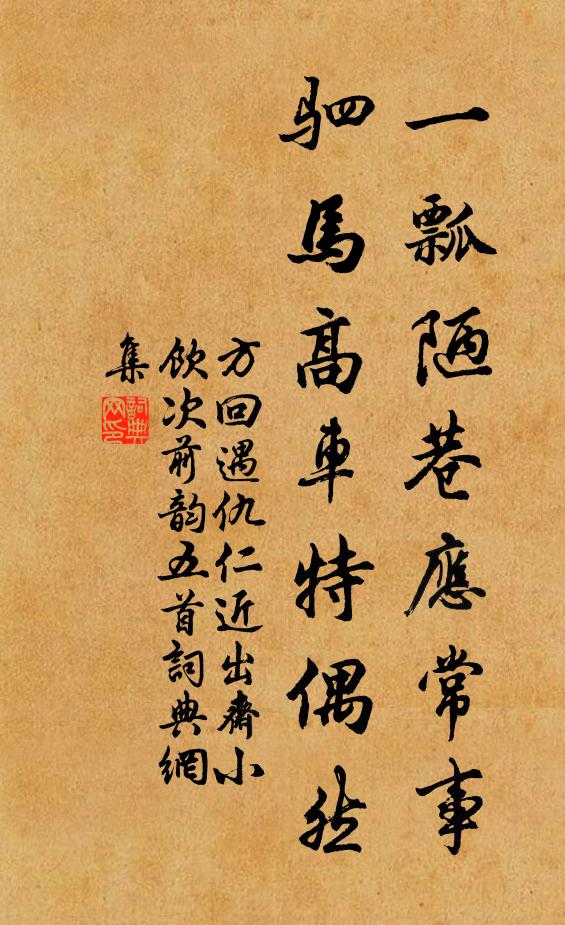 一瓢陋巷應常事
駟馬高車特偶然
方回遇仇仁近出齋小
飲次前韵五首詞典網
集
詞典網印